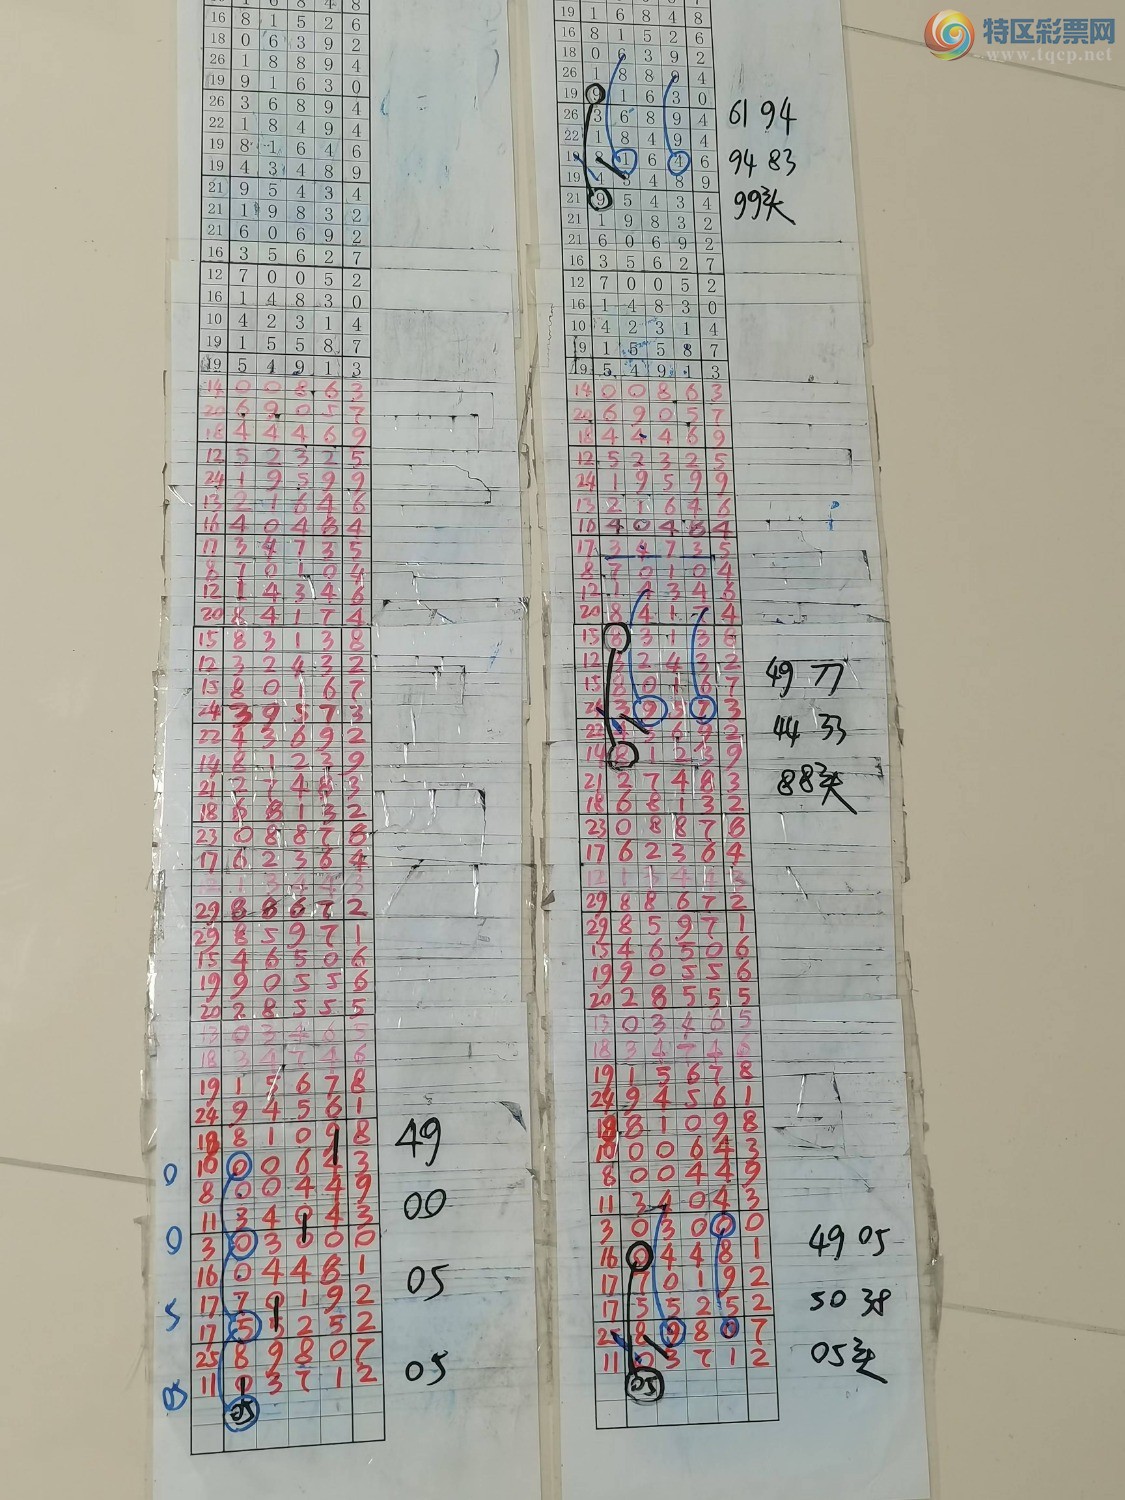 特区彩票网
www.tqcp.net
16 8 1 5 2 6
18 0 6 3 9 2
26 1 8 8 9 4
19 9 1 6 3 0
26 3 6 8 9 4
22 1 8 4 9 4
19 8 1 6 4 6
19 4 3 4 8 9
21 9 5 4 3 4
21 1 9 8 3 2
21 6 0 6 9 2
16 3 5 6 2 7
12 7 0 0 5 2
16 1 4 8 3 0
10 4 2 3 1 4
19 1 5 5 8 7
19 5 4 9 1 3
14 0 0 8 6 3
20 6 9 0 5 7
18 4 4 4 6 9
12 5 2 3 2 5
24 1 9 5 9 9
13 2 1 6 4 6
16 4 0 4 8 4
17 3 4 7 3 5
8 7 0 1 0 4
12 1 4 3 4 6
20 8 4 1 7 4
15 8 3 1 3 8
12 3 2 4 3 2
15 8 0 1 6 7
24 3 9 5 7 3
22 4 3 6 9 2
14 8 1 2 3 9
21 2 7 4 8 3
18 6 8 1 3 2
23 0 8 8 7 8
17 6 2 3 6 4
29 8 8 6 7 2
29 8 5 9 7 1
15 4 6 5 0 6
19 9 0 5 5 6
20 2 8 5 5 5
13 0 3 4 6 5
18 3 4 7 4 6
19 1 5 6 7 8
24 9 4 5 6 1
18 8 1 0 9 8 49
0 10 0 0 6 4 3
8 0 0 4 4 9 00
11 3 4 0 4 3
0 3 0 3 0 0 0
16 0 4 4 8 1 05
5 17 7 0 1 9 2
17 5 5 2 5 2
25 8 9 8 0 7 05
05 11 0 3 7 1 2
05
19 1 6 8 4 8
16 8 1 5 2 6
18 0 6 3 9 2
26 1 8 8 9 4
19 9 1 6 3 0 61 94
26 3 6 8 9 4
22 1 8 4 9 4
19 8 1 6 4 6 94 83
19 4 3 4 8 9
21 9 5 4 3 4 99头
21 1 9 8 3 2
21 6 0 6 9 2
16 3 5 6 2 7
12 7 0 0 5 2
16 1 4 8 3 0
10 4 2 3 1 4
19 1 5 5 8 7
19 5 4 9 1 3
14 0 0 8 6 3
20 6 9 0 5 7
18 4 4 4 6 9
12 5 2 3 2 5
24 1 9 5 9 9
13 2 1 6 4 6
16 4 0 4 8 4
17 3 4 7 3 5
8 7 0 1 0 4
12 1 4 3 4 6
20 8 4 1 7 4
15 8 3 1 3 8
12 3 2 4 3 2
15 8 0 1 6 7 49 77
24 3 9 5 7 3
22 4 3 6 9 2 44 33
14 8 1 2 3 9
21 2 7 4 8 3 88头
18 6 8 1 3 2
23 0 8 8 7 8
17 6 2 3 6 4
29 8 8 6 7 2
29 8 5 9 7 1
15 4 6 5 0 6
19 9 0 5 5 6
20 2 8 5 5 5
13 0 3 4 6 5
18 3 4 7 4 6
19 1 5 6 7 8
24 9 4 5 6 1
18 8 1 0 9 8
10 0 0 6 4 3
8 0 0 4 4 9
11 3 4 0 4 3
3 0 3 0 0 0 49 05
16 0 4 4 8 1
17 7 0 1 9 2
17 5 5 2 5 2 50 38
8 9 8 0 7 05头
11 0 3 7 1 2
05